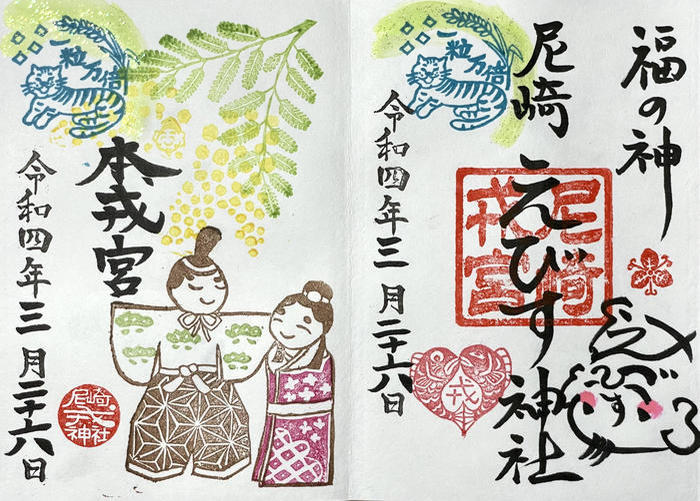 福の神
尼崎
えびす神社
尼崎
戎宮
えびす
戎
令和四年三月二十六日
一粒万倍
本戎宮
一粒万倍
令和四年三月二十六日
尼崎
戎
神社